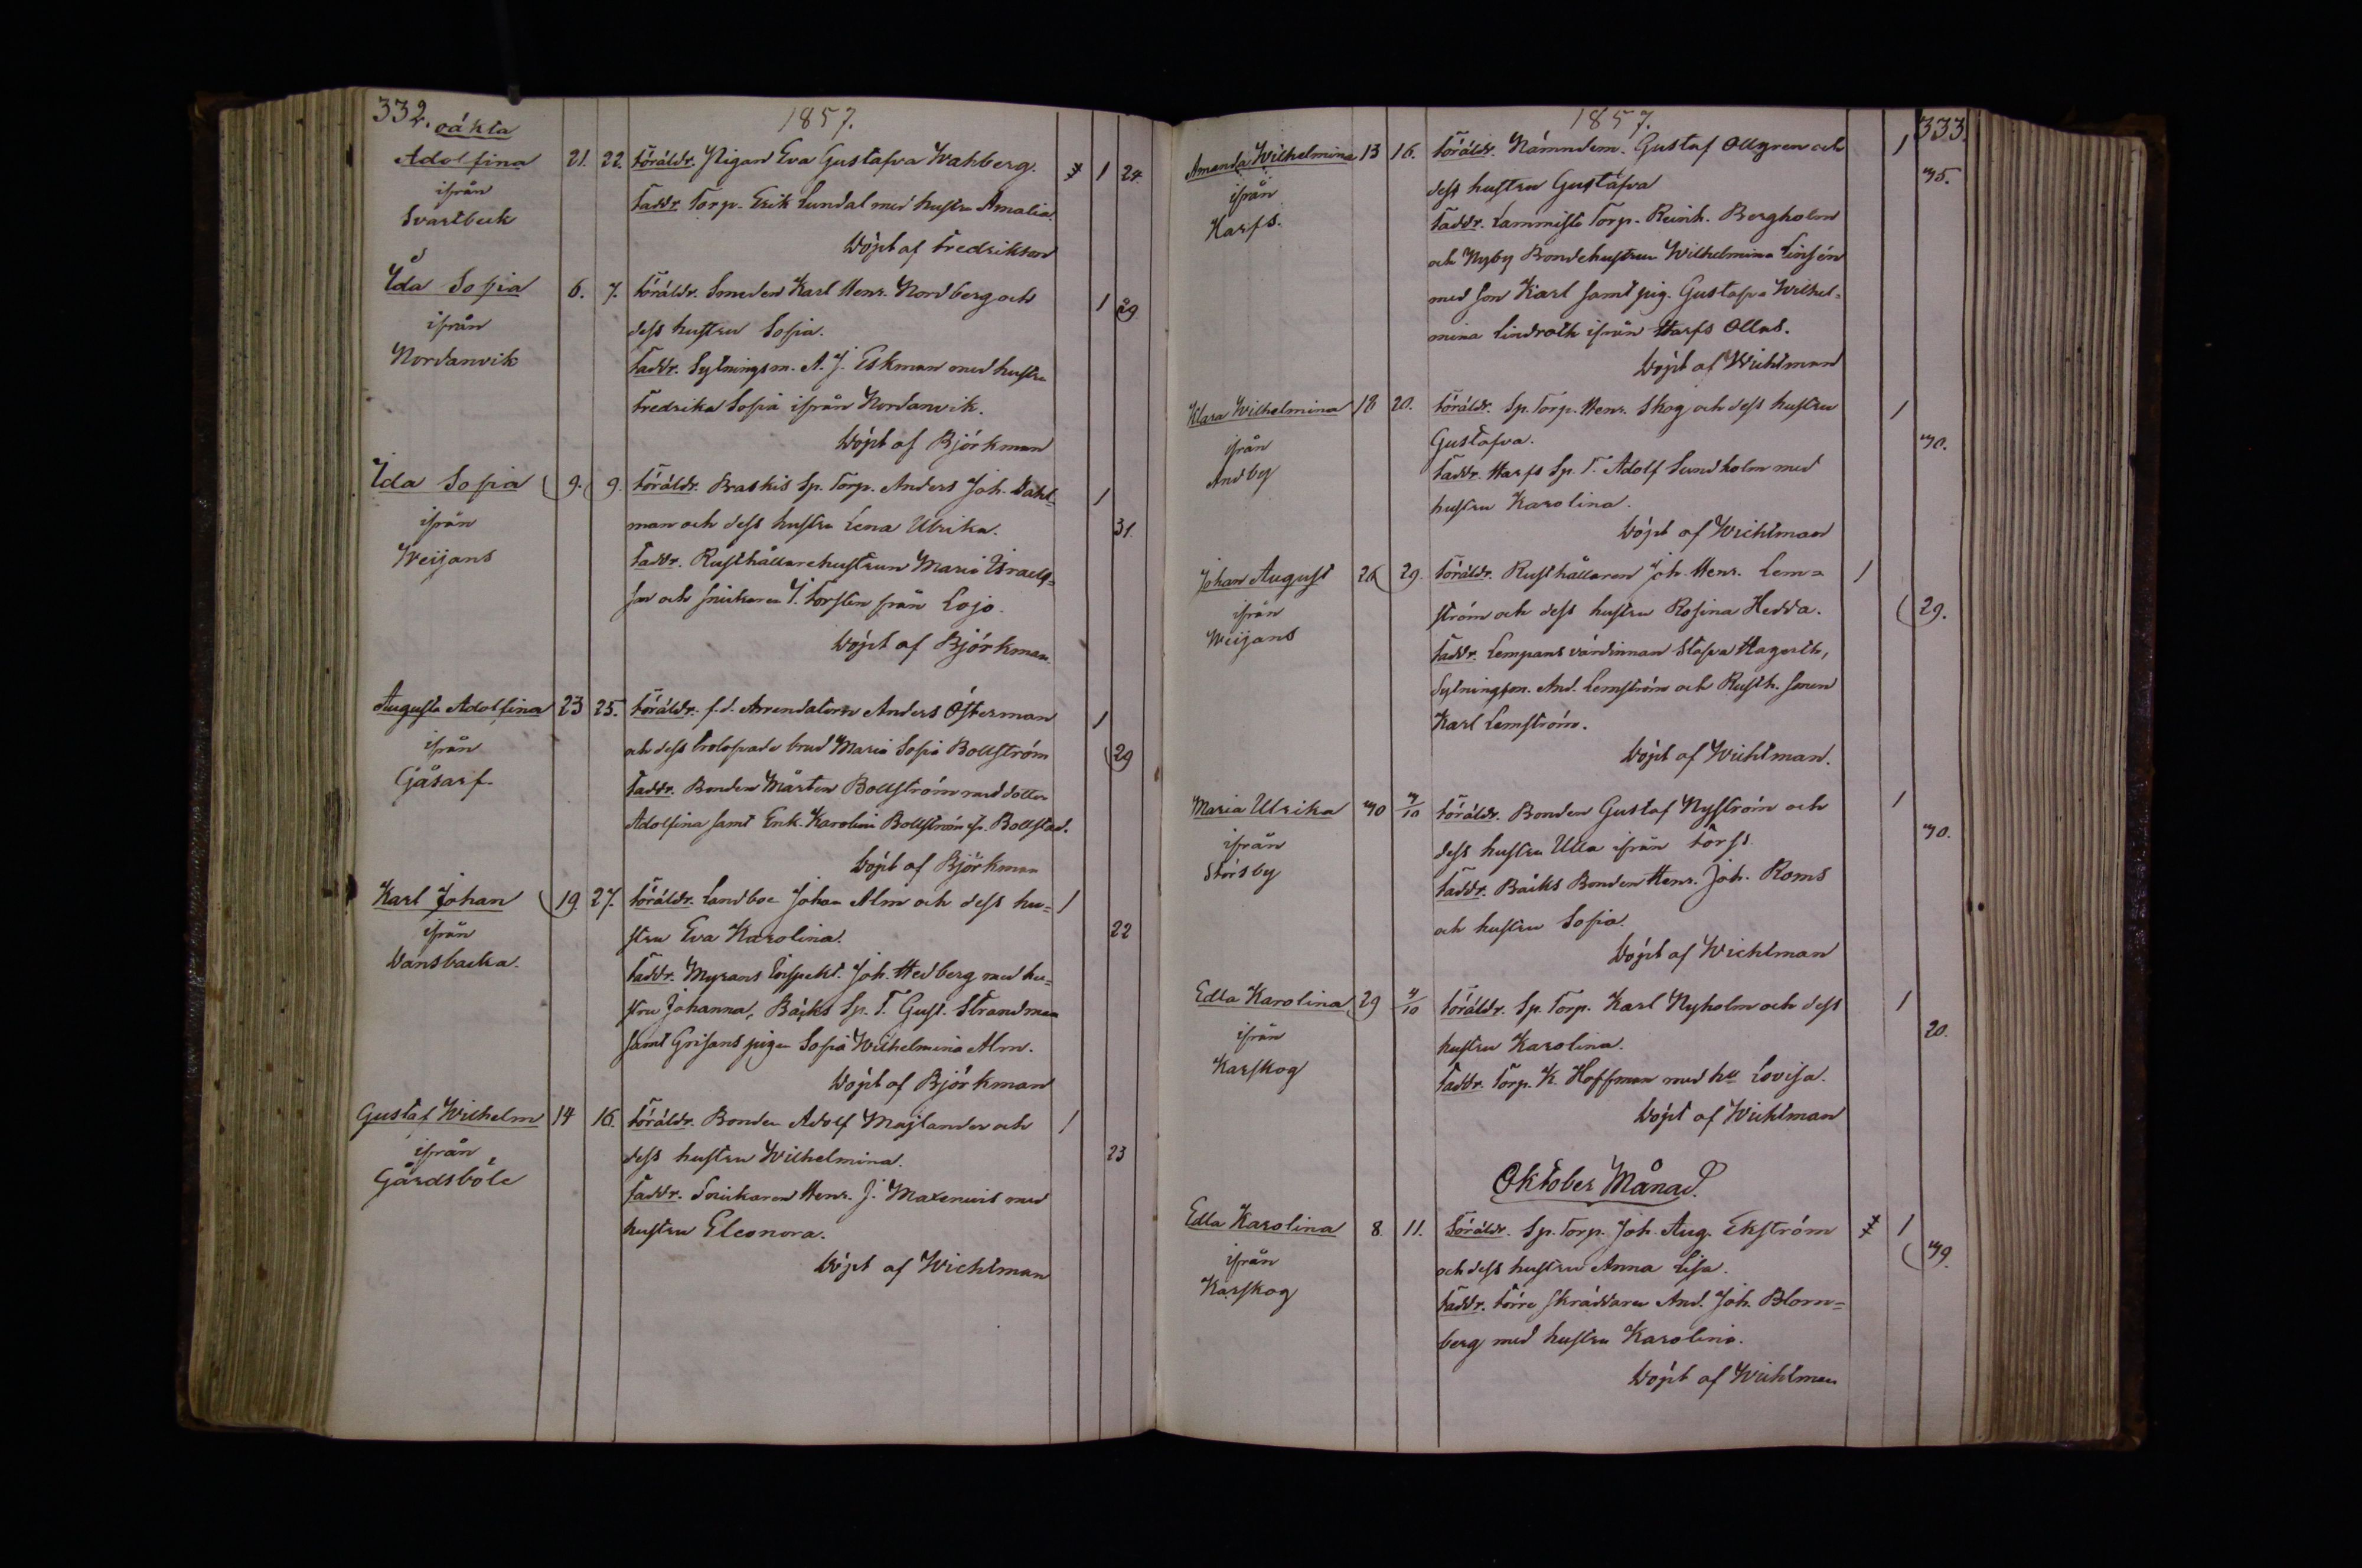 332.
1857.
oäkta
Adolfina 21. 22. Föräldr. Pigan Eva Gustafva Wahberg. 1 24
ifrån
Faddr. Torp. Erik Lundal med hustru Amalia.
Svartbeck
Döpt af Fredrikson
Ida Sofia 6. 7. Föräldr. Smeden Karl Henr. Nordberg och 1 29
ifrån
dess hustru Sofia.
Nordanvik
Faddr. Sytningsm. A. J. Eskman med hustru
Fredrika Sofia ifrån Nordanvik.
Döpt af Björkman
Ida Sofia 9. 9. Föräldr. Braskis Sp. Torp. Anders Joh. Dahl= 1
ifrån
man och dess hustru Lena Ulrika. 31.
Weijans
Faddr. Rusthållarehustrun Maria Israels=
son och snickaren J. Forstén från Lojo.
Döpt af Björkman.
Augusta Adolfina 23 25. Föräldr. f.d. Arrendatorn Anders Österman 1
ifrån
och dess trolofvade brud Maria Sofia Bollström 29
Gåsarf.
Faddr. Bonden Mårten Bollström med dotter
Adolfina samt Enk. Karolina Bollström ifr. Bollstad.
Döpt af Björkman
Karl Johan 19. 27. Föräldr. Landboe Johan Alm och dess hu= 1
ifrån
stru Eva Karolina. 22
Dansbacka.
Faddr. Myrans Inspekt. Joh. Hedberg med hu=
stru Johanna, Bäcks Sp. T. Gust. Strandman
samt Grisans pigan Sofia Wilhelmina Alm.
Döpt af Björkman
Gustaf Wilhelm 14 16. Föräldr. Bonden Adolf Majlander och 1
ifrån
dess hustru Wilhelmina. 23
Gårdsböle
Faddr. Snickaren Henr. J. Maxenius med
hustru Eleonora.
Döpt af Wichtman
333.
1857.
Amanda Wilhelmina 13 16. Föräldr. Nämndem. Gustaf Ollgren och 1
ifrån
dess hustru Gustafva 35.
Harfs.
Faddr. Lammistö Torp. Reinh. Bergholm
och Nyby Bondehustrun Wilhelmina Linsén
med son Karl samt pig. Gustafva Wilhel=
mina Lindroth ifrån Harfs Ollas.
Döpt af Wichtman
Klara Wilhelmina 18 20. Föräldr. Sp. Torp. Henr. Skog och dess hustru 1
ifrån
Gustafva. 30.
Andby
Faddr. Harfs Sp. T. Adolf Sundholm med
hustru Karolina.
Döpt af Wichtman
Johan August 26 29. Föräldr. Rusthållaren Joh. Henr. Lem= 1
ifrån
ström och dess hustru Rosina Hedda. 29.
Weijans
Faddr. Lempans värdinnan Stafva Hagerth,
Sytningsm. And. Lemström och Rusth. sonen
Karl Lemström.
Döpt af Wichtman.
Maria Ulrika 30 3/10 Föräldr. Bonden Gustaf Nyström och 1
ifrån
dess hustru Ulla ifrån 30.
Störsby
Faddr. Bäcks Bonden Henr. Joh. Roms
och hustru Sofia.
Döpt af Wichtman
Edla Karolina 29 4/10 Föräldr. Sp. Torp. Karl Nyholm och dess 1
ifrån
hustru Karolina. 20.
Karskog
Faddr. Torp. K. Hoffman med hu Lovisa.
Döpt af Wichtman
Oktober Månad.
Edla Karolina 8. 11. Föräldr. Sp. Torp. Joh. Aug. Ekström 1
ifrån
och dess hustru Anna Lisa. 39.
Karskog
Faddr. Förre skräddaren And. Joh. Blom=
berg med hustru Karolina.
Döpt af Wichtman